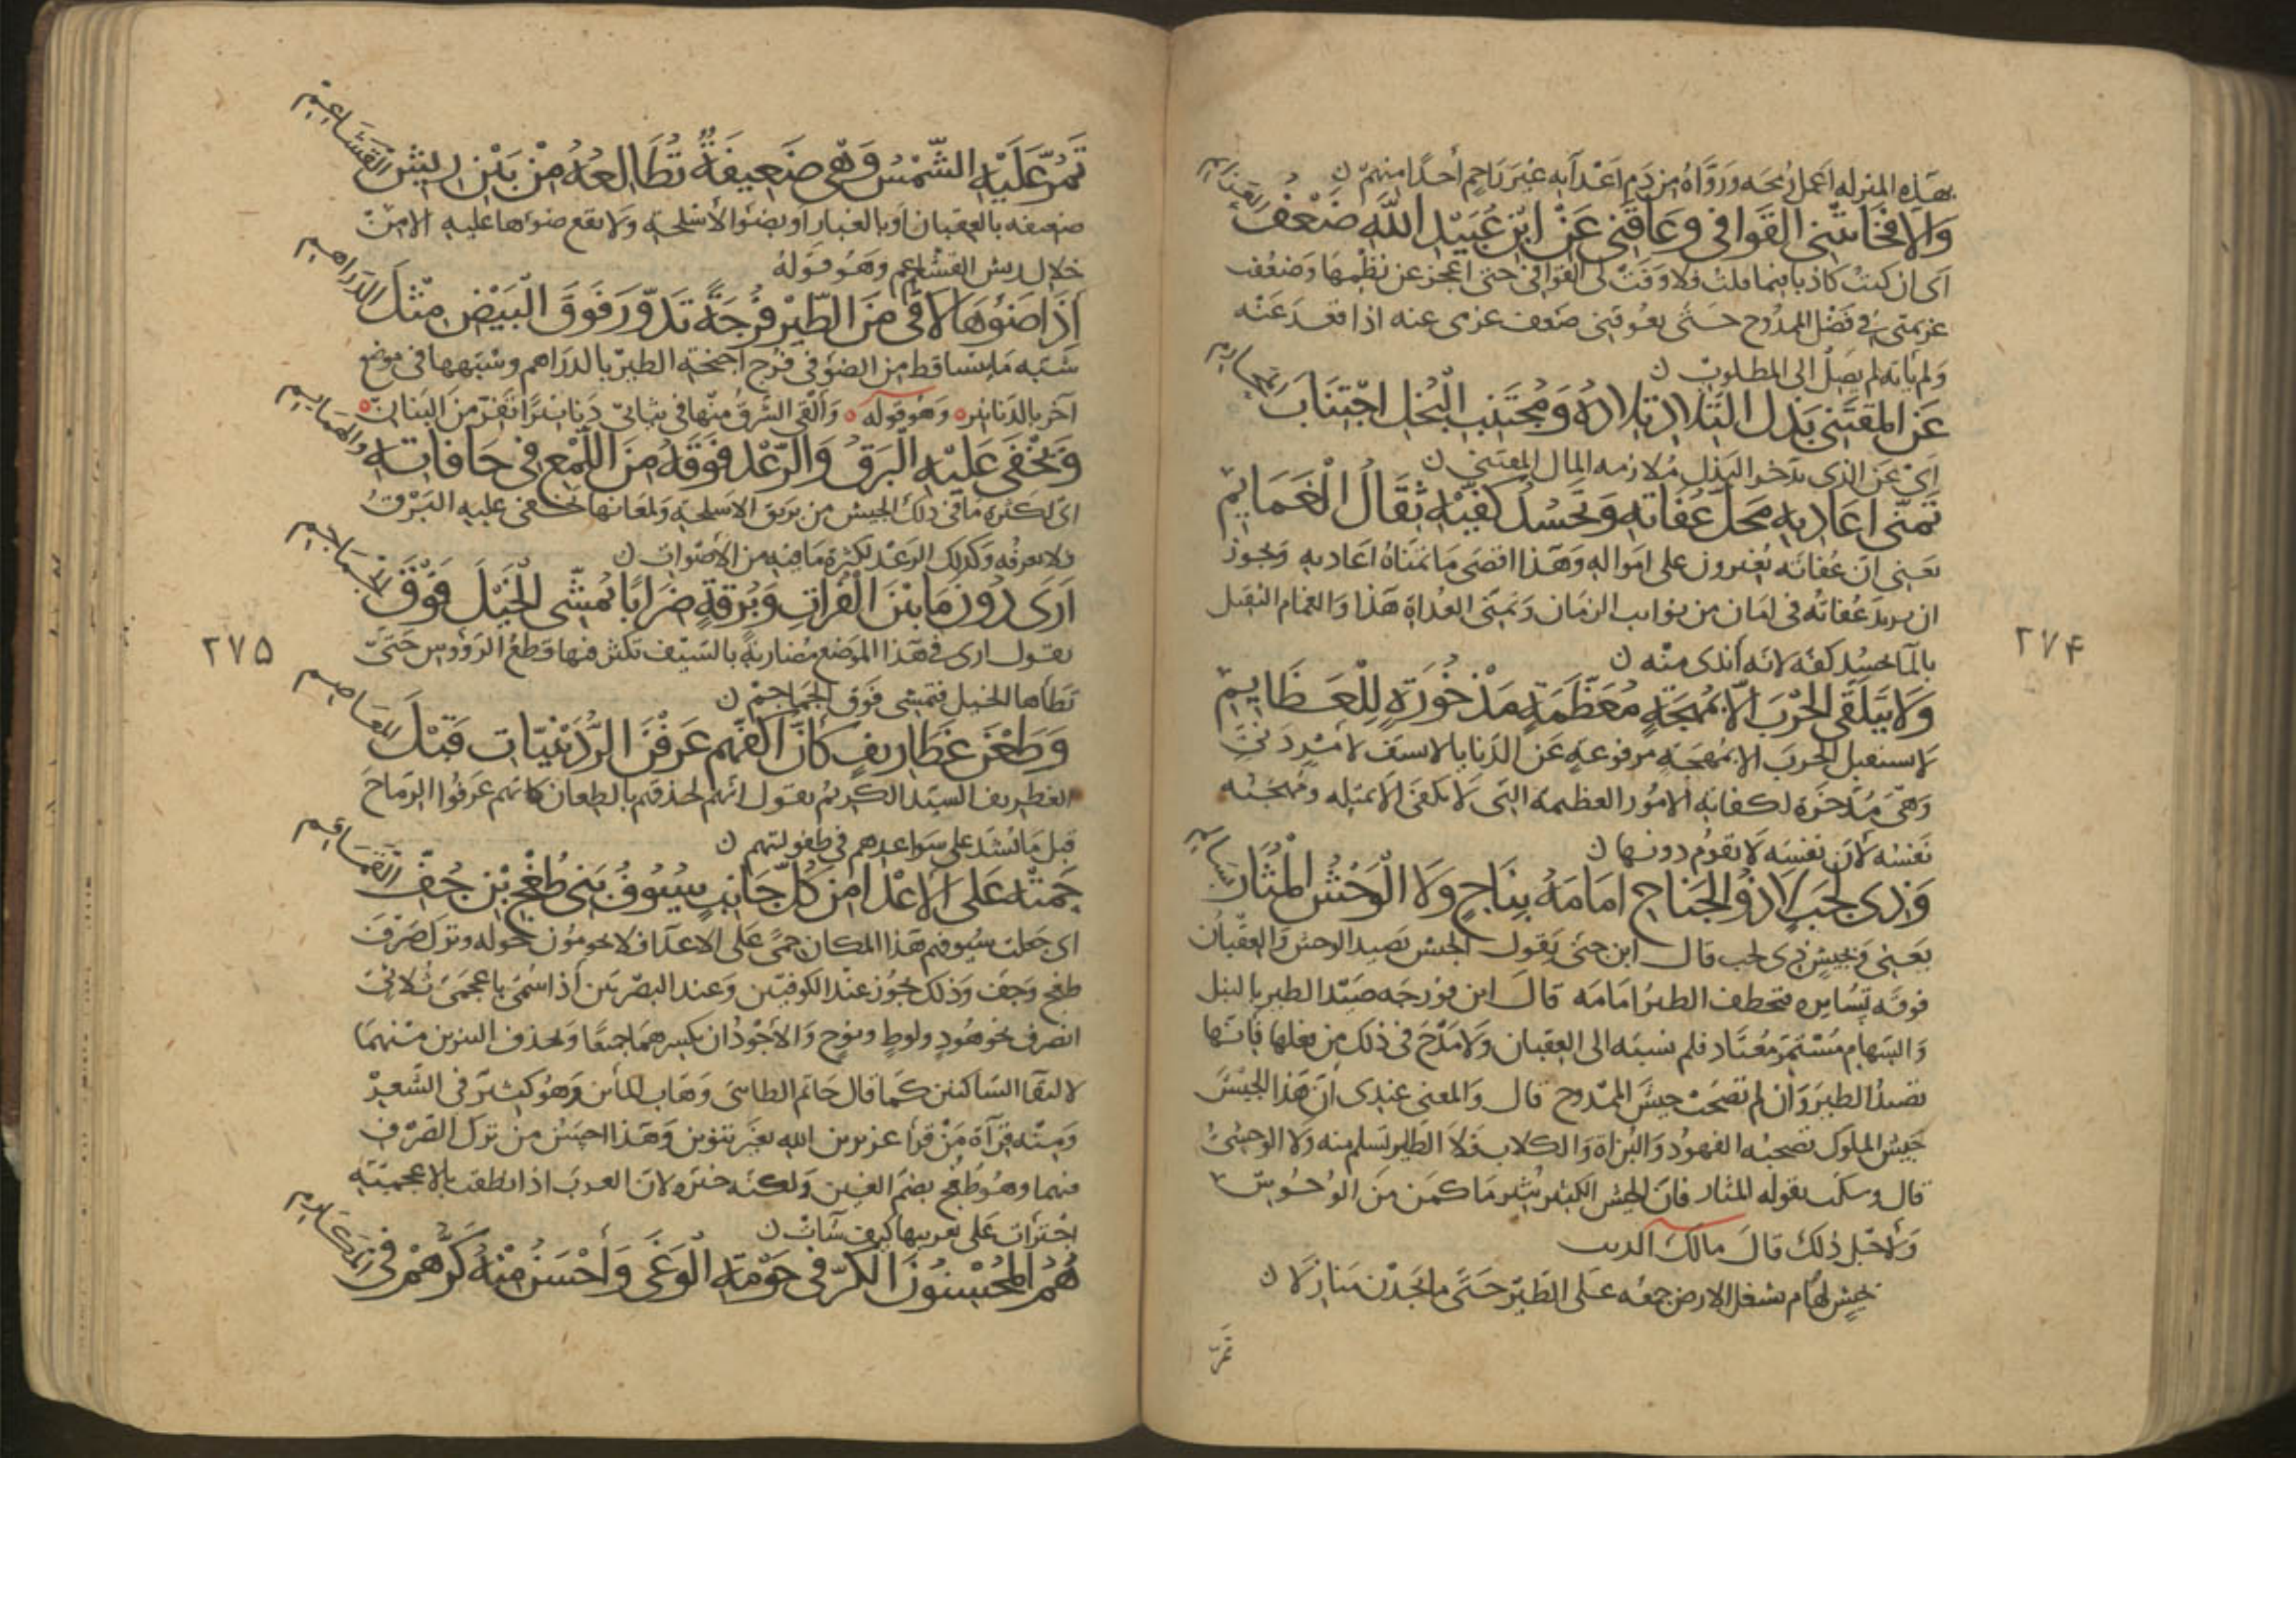 بهذه المنزله اعمل رمحه وروّاه من دم اعدآيه غير راحم أحدًا منهم ن
وَالّا فَخَانَتْنِي القَوافي وعَاقَنِي عَنْ ابْنِ عُبَيْدِ اللهِ ضَعْفُ العَزَايم
اى ان كنت كاذبا فيما قلت فلا وفت لى القوافى حتى اعجز عن نظمها وضعف
عزيمتى فى فضل الممدوح حتى يعوقنى ضعف عزمى عنه اذا قعد عنه
ولم ياته لم يصل الى المطلوب ن
عَنِ المُقْتَنِي بَذْلَ التِّلادِ تِلادَهُ وَمُجْتَنِبِ البُخْلِ اجْتِنَابَ المحارم
اى عن الذى يدخر البذل ملازمه المال المقتنى ن
تَمَنَّى اعَادِيهِ مَحَلَّ عُفَاتِهِ وَتَحْسُدُ كَفَّيْهِ ثِقَالُ الْغَمَايِمِ
يعنى ان عفاته يغيرون على امواله وهذا اقصى ما تتمناه اعاديه ويجوز
ان يريد عفاته فى امان من نوايب الزمان وتمنى العداة هذا والغمام الثقيل
بالمآ تحسد كفه لانه أندى منه ن
وَلا يَتَلَقَّى الحَرْبَ الّا بِمُهْجَةٍ مُعَظَّمَةٍ مَذْخُورَةٍ لِلْعَظَايِمِ
لا يستقبل الحرب الا بمهجة مرفوعة عن الدنايا لا تسف لامر دنى
وهى مدخرة لكفاية الامور العظيمة التى لا تكفى الا بمثله ومهجته
نفسه لان نفسه لا تقوم دونها ن
وَذِي لَجَبٍ لا ذُو الجَنَاحِ امَامَهُ بِنَاجٍ وَلا الْوَحْشُ الْمُثَارُ بسالم
يعنى وجيش ذى لجب قال ابن جنى يقول الجيش يصيد الوحش والعقبان
فوقه تسايره فتخطف الطير امامه قال ابن فورجه صيد الطير بالنبل
والسهام مستمر معتاد فلم نسبه الى العقبان ولا مدح فى ذلك من فعلها فانها
تصيد الطير وان لم تصحب جيش الممدوح قال والمعنى عندى ان هذا الجيش
جيش الملوك تصحبه الفهود والبزاة والكلاب فلا الطير تسلم منه ولا الوحش
قال بقوله المثار فان الجيش الكثير يثير ما كمن من الوحوش
ولاجل ذلك قال مالك الريب
بجيش لهام يشغل الارض جمعه على الطير حتى ما يجدن منازلا ن
تمرّ
٢٧۴
تَمُرُّ عَلَيْهِ الشَّمْسُ وَهْيَ ضَعِيفَةٌ تُطَالِعُهُ مِنْ بَيْنِ رِيشِ القَشَاعِمِ
ضعيفه بالعقبان او بالغبار او بضوء الأسلحة ولا يقع ضوءها عليه الا من
خلال ريش القشاعم وهو قوله
اذَا ضَوْءُهَا لاقَى مِنَ الطَّيْرِ فُرْجَةً تَدَوَّرَ فَوْقَ الْبَيْضِ مِثْلَ الدَّرَاهِمِ
شبه ما يتساقط من الضوء فى فرج اجنحة الطير بالدراهم وشبهها فى موضع
آخر بالدنانير وهو قوله وألقى الشرق منها فى ثيابى دنانيرًا تفر من البنان
وَيَخْفَى عَلَيْهِ الْبَرْقُ وَالرَّعْدُ فَوْقَهُ مِنَ اللَّمْعِ فِي حَافَاتِهِ وَالهَمَاهِمِ
اى لكثره ما فى ذلك الجيش من بريق الاسلحة ولمعانها يخفى عليه البرق
ولا يعرفه وكذلك الرعد لكثرة ما فيه من الأصوات ن
اَرَى دُونَ مَا بَيْنَ الْفُرَاتِ وَبُرْقَةٍ ضِرَابًا يُمَشِّي الخَيْلَ فَوْقَ الجَمَاجِمِ
يقول ارى فى هذا الموضع مضاربة بالسيف تكثر فيها قطع الرؤوس حتى
تطأها الخيل فتمشى فوق الجماجم ن
وَطَعْنَ غَطَارِيفٍ كَأَنَّ اكُفَّهُمْ عَرَفْنَ الرُّدَيْنِيَّاتِ قَبْلَ المَعَاصِمِ
الغطريف السيد الكريم يقول انهم لحذقهم بالطعان كانهم عرفوا الرماح
قبل ما تشتد على سواعدهم فى طفوليتهم ن
حَمَتْهُ عَلَى الأَعْدَا مِنْ كُلِّ جَانِبٍ سُيُوفُ بَنِي طُغْجِ بْنِ جُفِّ القَمَاقِمِ
اى جعلت سيوفهم هذا المكان حمىً على الاعدآ فلا يحومون حوله وترك صرف
طغج وجف وذلك يجوز عند الكوفيين وعند البصريين اذا سمى باعجمى ثلاثى
انصرف نحو هود ولوط ونوح والاجود ان يكسرهما جميعا ويحذف التنوين منهما
لالتقا الساكنين كما قال حاتم الطائى وهاب المأين وهو كثير فى الشعر
ومنه قرآة من قرأ عزير بن الله بغير تنوين وهذا احسن من ترك الصرف
فيهما وهو طغج بضم الغين ولكنه غيره لان العرب اذا نطقت بالاعجمية
اجترأت على تعريبها كيف شآءت ن
هُمُ المُحْسِنُونَ الكَرَّ فِي حَوْمَةِ الْوَغَى وَأَحْسَنُ مِنْهُ كَرُّهُمْ فِي المَكَارِمِ
٢٧۵